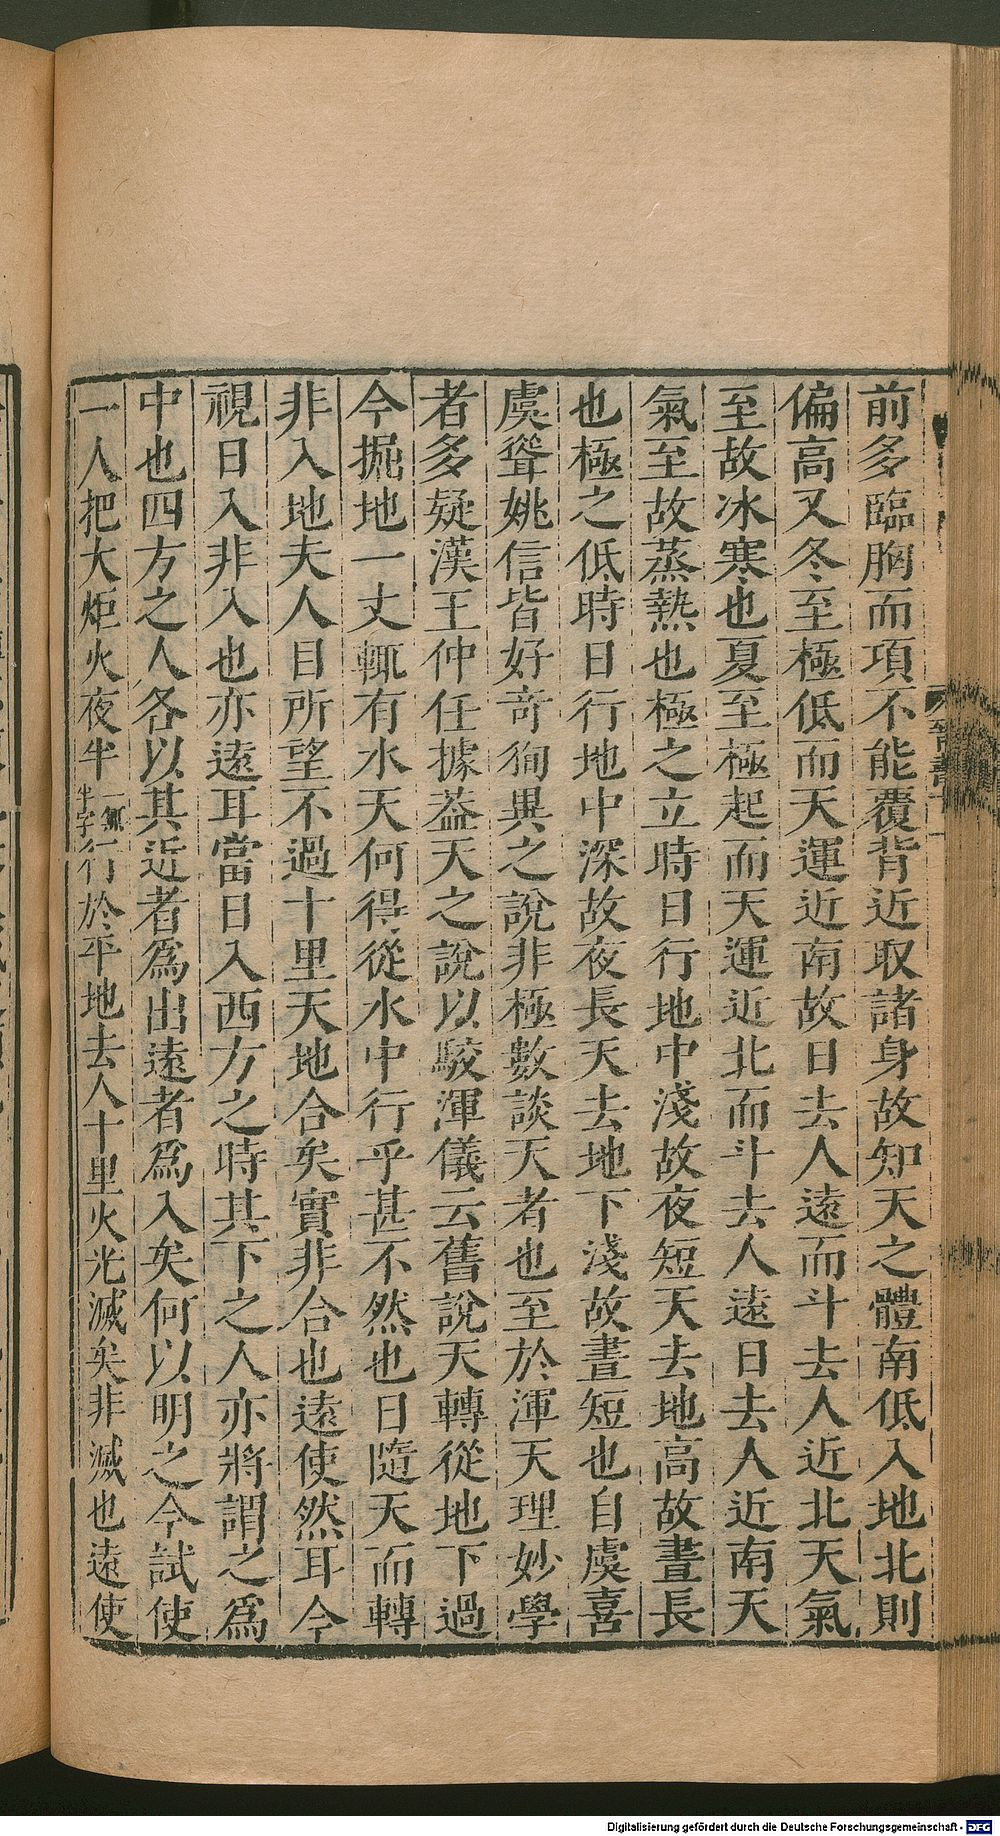 前多臨胸而項不能覆背近取諸身故知天之體南低入地北則
偏高又冬至極低而天運近南故日去人遠而斗去人近北天氣
至故冰寒也夏至極起而天運近北而斗去人遠日去人近南天
氣至故蒸熱也極之立時日行地中淺故夜短天去地高故晝長
也極之低時日行地中深故夜長天去地下淺故晝短也自虞喜
虞聳姚信皆好奇徇異之說非極數談天者也至於渾天理妙學
者多疑漢王仲任據葢天之說以駮渾儀云舊說天轉從地下過
今掘地一丈輒有水天何得從水中行乎甚不然也日隨天而轉
非入地夫人目所望不過十里天地合矣實非合也遠使然耳今
視日入非入也亦遠耳當日入西方之時其下之人亦將謂之爲
中也四方之人各以其近者爲出遠者爲入矣何以明之今試使
一人把大炬火夜半一無半字行於平地去人十里火光滅矣非滅也遠使
Digitalisierung gefördert durch die Deutsche Forschungsgemeinschaft - DFG